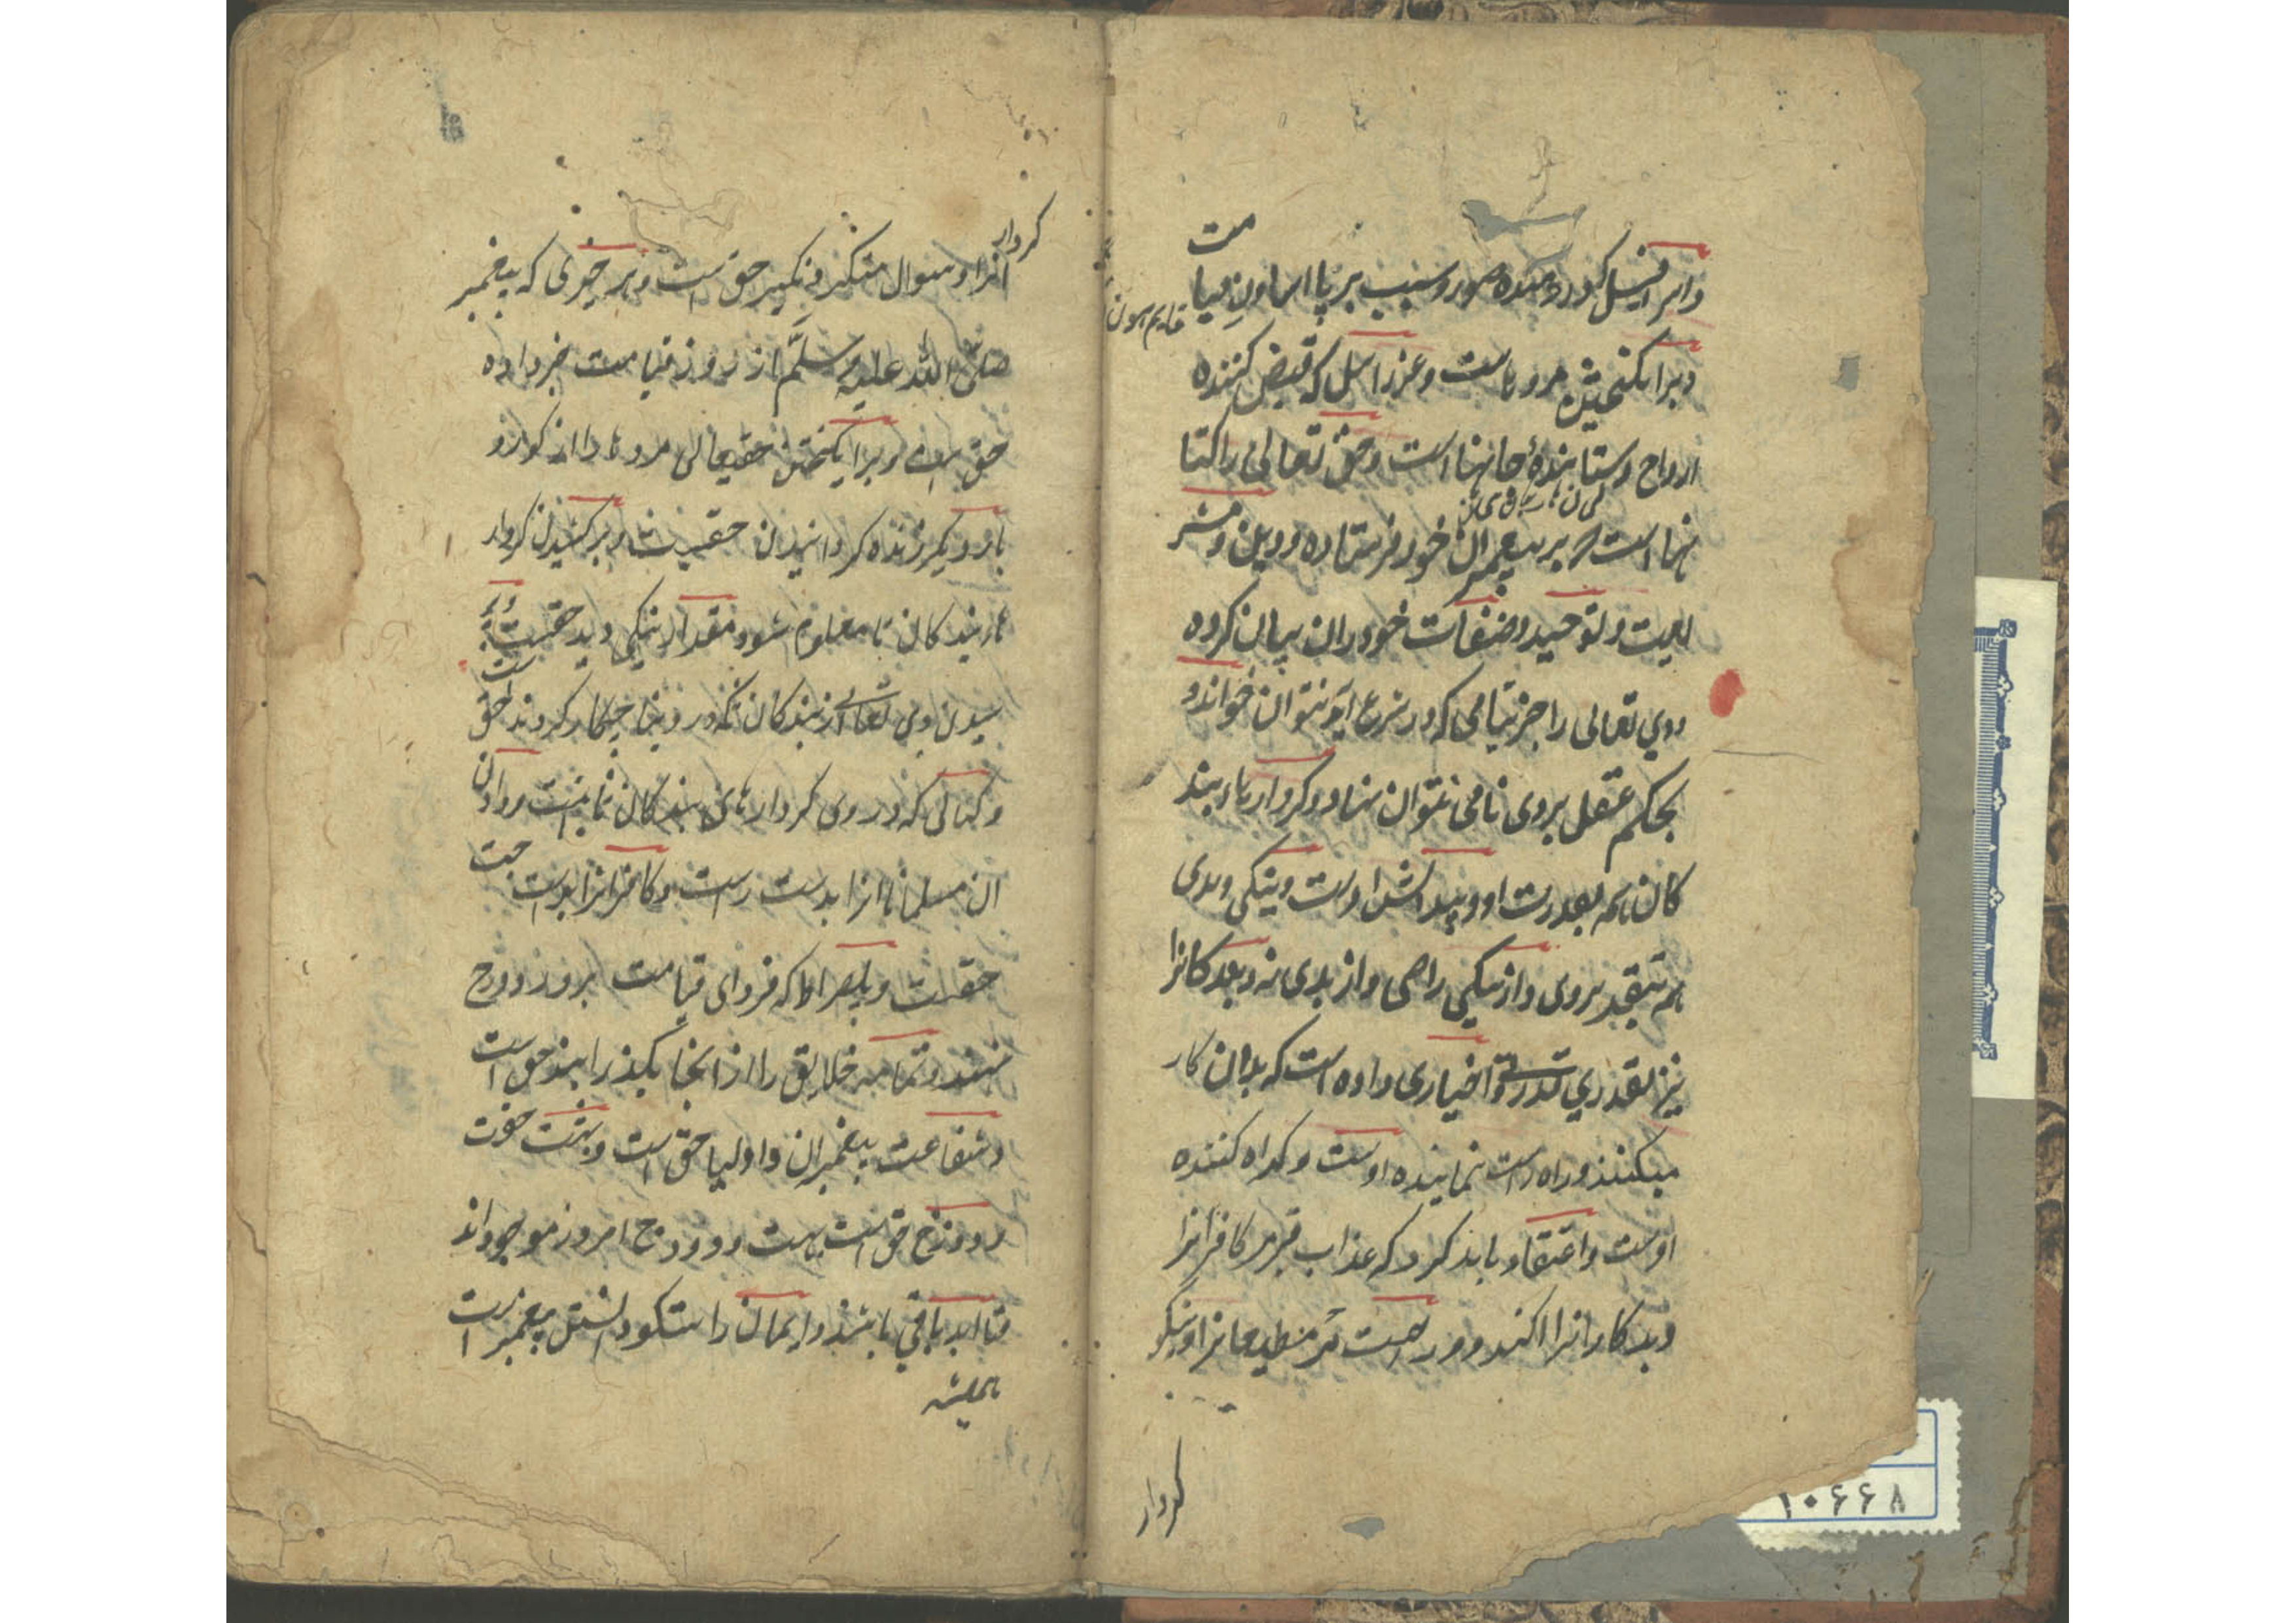 واسرافیل که در دمنده صور و سبب بر پا
مت
قایم هون
و برانگیختن مرده هاست و عزرائیل که قبض کننده
ارواح و ستاننده جانهاست و حق تعالی را کتا
بهاست که بر پیغمبران خود فرستاده و دین و شر
ایت و توحید و صفات خود دران بیان کرده
و وی تعالی را جز بنامی که در شرع آید نتوان خواند و
بحکم عقل بروی نامی نتوان نهاد و کردارهاء بند
کان همه بقدرت او و پیدایش اوست و نیکی و بدی
همه بتقدیر وی و از نیکی راضی و از بدی نه و بندکانرا
نیز بقدری قدرت و اختیاری داده است که بدان کار
میکنند و راه راست نماینده اوست و کمراه کننده
اوست و اعتقاد باید کرد که عذاب قبر مر کافرانرا
و بدکارانرا کنند و راحت مر مطیعانرا و نیکو
کردار
کردار
انرا و سوال منکر و نکیر حق است و هر چیزی که پیغمبر
صلی الله علیه وسلم از روز قیامت خبر داده
حق است و برانکیختن حقتعالی مرده ها را از کور و
بار دیکر زنده کردانیدن حقیست و برکشیدن کردار
هاء بندکان تا معلوم شود مقدار نیکی و بدی حقیست و پر
سیدن وی تعالی از بندکان که در دنیا چکار کردند حق است
و کتابی که در وی کردارهای بندکان ثابت است و دادن
ان مسلمانانرا بدست راست و کافرانرا بدست چپ
حقست و پلصراط که فردای قیامت بروز دوزخ
نهند و تمامه خلایق را از انجا بکذرانند حق است
و شفاعت پیغمبران و اولیا حق است و بهشت حق است
و دوزخ حق است بهشت و دوزخ امروز موجود اند
تا ابد باقی باشند و ایمان راستکو دانستن پیغمبر است
همیشه
۱۰۶۶۸